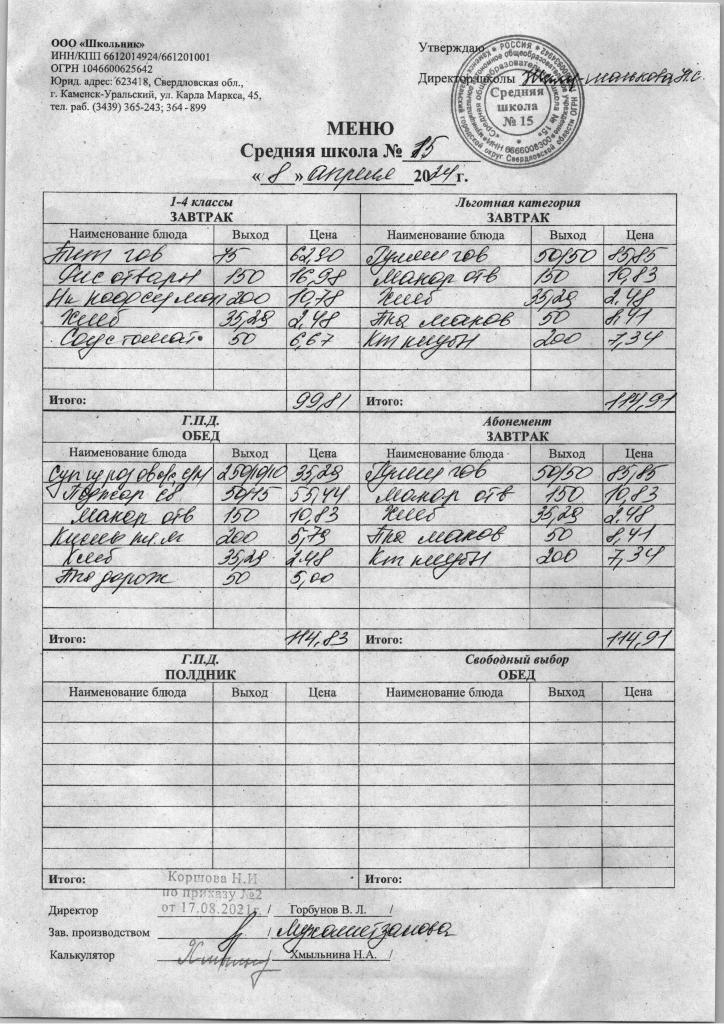 ООО «Школьник»
ИНН/КПП 6612014924/661201001
ОГРН 1046600625642
Юрид. адрес: 623418, Свердловская обл.,
г. Каменск-Уральский, ул. Карла Маркса, 45,
тел. раб. (3439) 365-243; 364 - 899
Утверждаю
Директор школы
Средняя
школа
№ 15
МЕНЮ
Средняя школа № 15
« 8 » апреля 2024г.
1-4 классы
ЗАВТРАК
Наименование блюда Выход Цена
гов 75 62,90
Рис отварн 150 16,98
200 10,78
Хлеб 35,29 2,48
Соус томат. 50 6,67
Итого: 99,81
Льготная категория
ЗАВТРАК
Наименование блюда Выход Цена
Гуляш гов 50/50 85,85
Макар отв 150 10,83
Хлеб 35,29 2.48
маков 50 8,41
200 7,34
Итого: 114,91
Г.П.Д.
ОБЕД
Наименование блюда Выход Цена
Суп 250/10/10 35,29
50/75 55,44
Макар отв 150 10,83
Кисель 200 5,79
Хлеб 35,29 2.48
дорож 50 5,00
Итого: 114,83
Абонемент
ЗАВТРАК
Наименование блюда Выход Цена
Гуляш гов 50/50 85,85
Макар отв 150 10,83
Хлеб 35,29 2.48
маков 50 8,41
200 7,34
Итого: 114,91
Г.П.Д.
ПОЛДНИК
Наименование блюда Выход Цена
Итого:
Свободный выбор
ОБЕД
Наименование блюда Выход Цена
Итого:
Коршова Н.И
по приказу №2
от 17.08.2021г.
Директор / Горбунов В. Л. /
Зав. производством / Мухаметзанова
Калькулятор / Хмыльнина Н.А. /